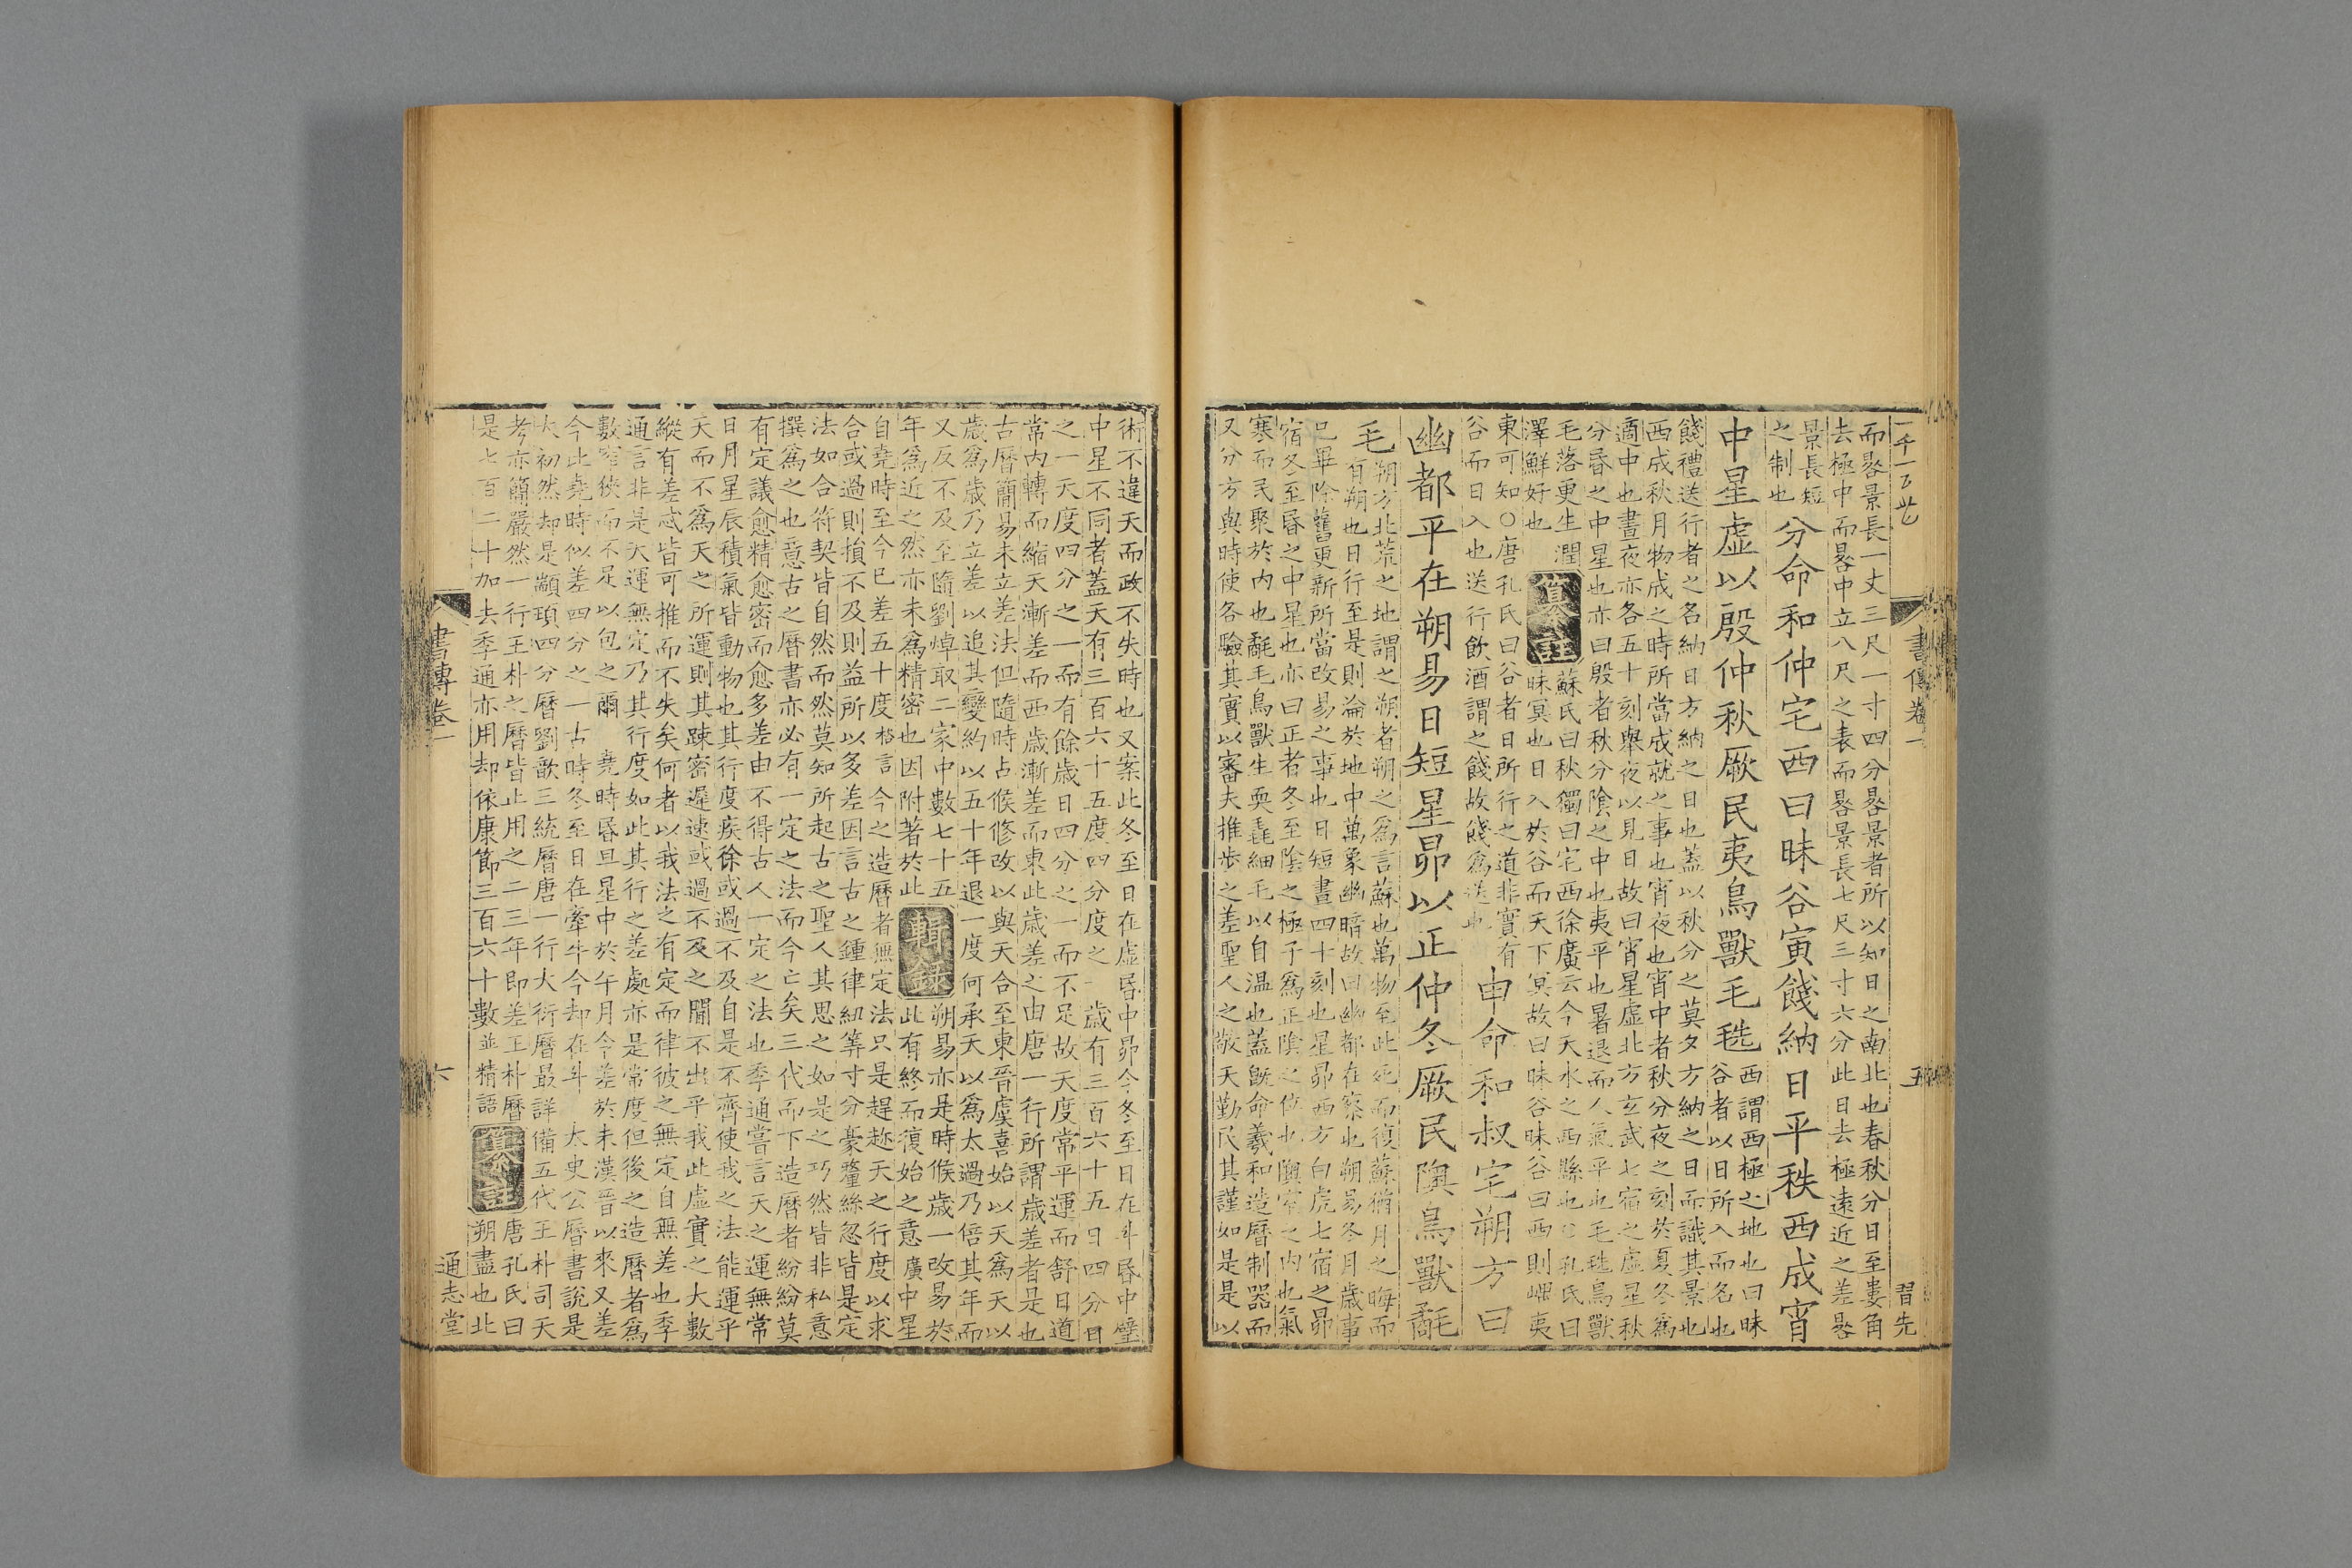 而晷景長一丈三尺一寸四分晷景者所以知日之南北也春秋分日至婁角
去極中而晷中立八尺之表而晷景長七尺三寸六分此日去極遠近之差晷
景長短
之制也
分命和仲宅西曰昧谷寅餞納日平秩西成宵
中星虚以殷仲秋厥民夷鳥獸毛毨
西謂西極之地也曰昧
谷者以日所入而名也
餞禮送行者之名納日方納之日也蓋以秋分之莫夕方納之日而識其景也
西成秋月物成之時所當成就之事也宵夜也宵中者秋分夜之刻於夏冬為
適中也晝夜亦各五十刻舉夜以見日故曰宵星虚北方玄武七宿之虚星秋
分昏之中星也亦曰殷者秋分陰之中也夷平也暑退而人氣平也毛毨鳥獸
毛落更生潤
澤鮮好也
纂註
蘇氏曰秋獨曰宅西徐廣云今天水之西縣也 孔氏曰
昧冥也日入於谷而天下冥故曰昧谷昧谷曰西則嵎夷
東可知○唐孔氏曰谷者日所行之道非實有
谷而日入也送行飲酒謂之餞故餞為送也
申命和叔宅朔方曰
幽都平在朔易日短星昴以正仲冬厥民隩鳥獸氄
毛
朔方北荒之地謂之朔者朔之為言蘇也萬物至此死而復蘇猶月之晦而
有朔也日行至是則淪於地中萬象幽暗故曰幽都在察也朔易冬月歲事
已畢除舊更新所當改易之事也日短晝四十刻也星昴西方白虎七宿之昴
宿冬至昏之中星也亦曰正者冬至陰之極子為正陰之位也隩室之内也氣
寒而民聚於内也氄毛鳥獸生耎毳細毛以自温也蓋既命羲和造曆制器而
又分方與時使各驗其實以審夫推步之差聖人之敬天勤民其謹如是是以
術不違天而政不失時也又案此冬至日在虚昏中昴今冬至日在斗昏中壁
中星不同者蓋天有三百六十五度四分度之一歲有三百六十五日四分日
之一天度四分之一而有餘歲日四分之一而不足故天度常平運而舒日道
常内轉而縮天漸差而西歲漸差而東此歲差之由唐一行所謂歲差者是也
古曆簡易未立差法但隨時占候修改以與天合至東晉虞喜始以天為天以
歲為歲乃立差以追其變約以五十年退一度何承天以為太過乃倍其年而
又反不及至隋劉焯取二家中數七十五
年為近之然亦未為精密也因附著於此
輯錄
朔易亦是時候歲一改易於
此有終而復始之意 廣中星
自堯時至今已差五十度 格言 今之造曆者無定法只是趕趂天之行度以求
合或過則損不及則益所以多差因言古之鍾律紐筭寸分豪釐絲忽皆是定
法如合符契皆自然而然莫知所起古之聖人其思之如是之巧然皆非私意
撰為之也意古之曆書亦必有一定之法而今亡矣三代而下造曆者紛紛莫
有定議愈精愈密而愈多差由不得古人一定之法也季通嘗言天之運無常
日月星辰積氣皆動物也其行度疾徐或過不及自是不齊使我之法能運乎
天而不為天之所運則其踈密遲速或過不及之閒不出乎我此虚實之大數
縱有差忒皆可推而不失矣何者以我法之有定而律彼之無定自無差也季
通言非是天運無定乃其行度如此其行之差處亦是常度但後之造曆者為
數窄狹而不足以包之爾 堯時昏旦星中於午月令差於未漢晉以來又差
今此堯時似差四分之一古時冬至日在牽牛今却在斗 太史公曆書說是
太初然却是顓頊四分曆劉歆三統曆唐一行大衍曆最詳備五代王朴司天
考亦簡嚴然一行王朴之曆皆止用之二三年即差王朴曆
是七百二十加去季通亦用却依康節三百六十數 並精語
纂註
唐孔氏曰
朔盡也北
書傳卷一
五
六
通志堂